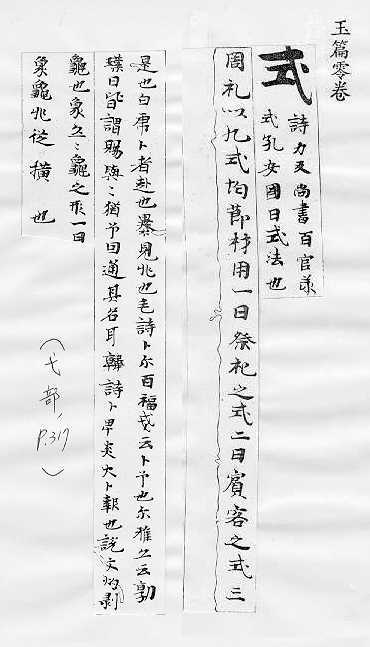 玉篇零卷
式
詩力反尚書百官羕
式孔安國曰式法也
周礼以九式均節財用一曰祭祀之式二曰賓客之式三
是也白虎卜者赴也㬥見兆也毛詩卜尓百福戔云卜予也尓雅亦云
曰皆謂賜與也猶予曰通其名耳韓詩卜畀炎火卜報也說文灼剥
龜也象炙龜之形一曰
象龜兆從橫也
(弋部, P.317)